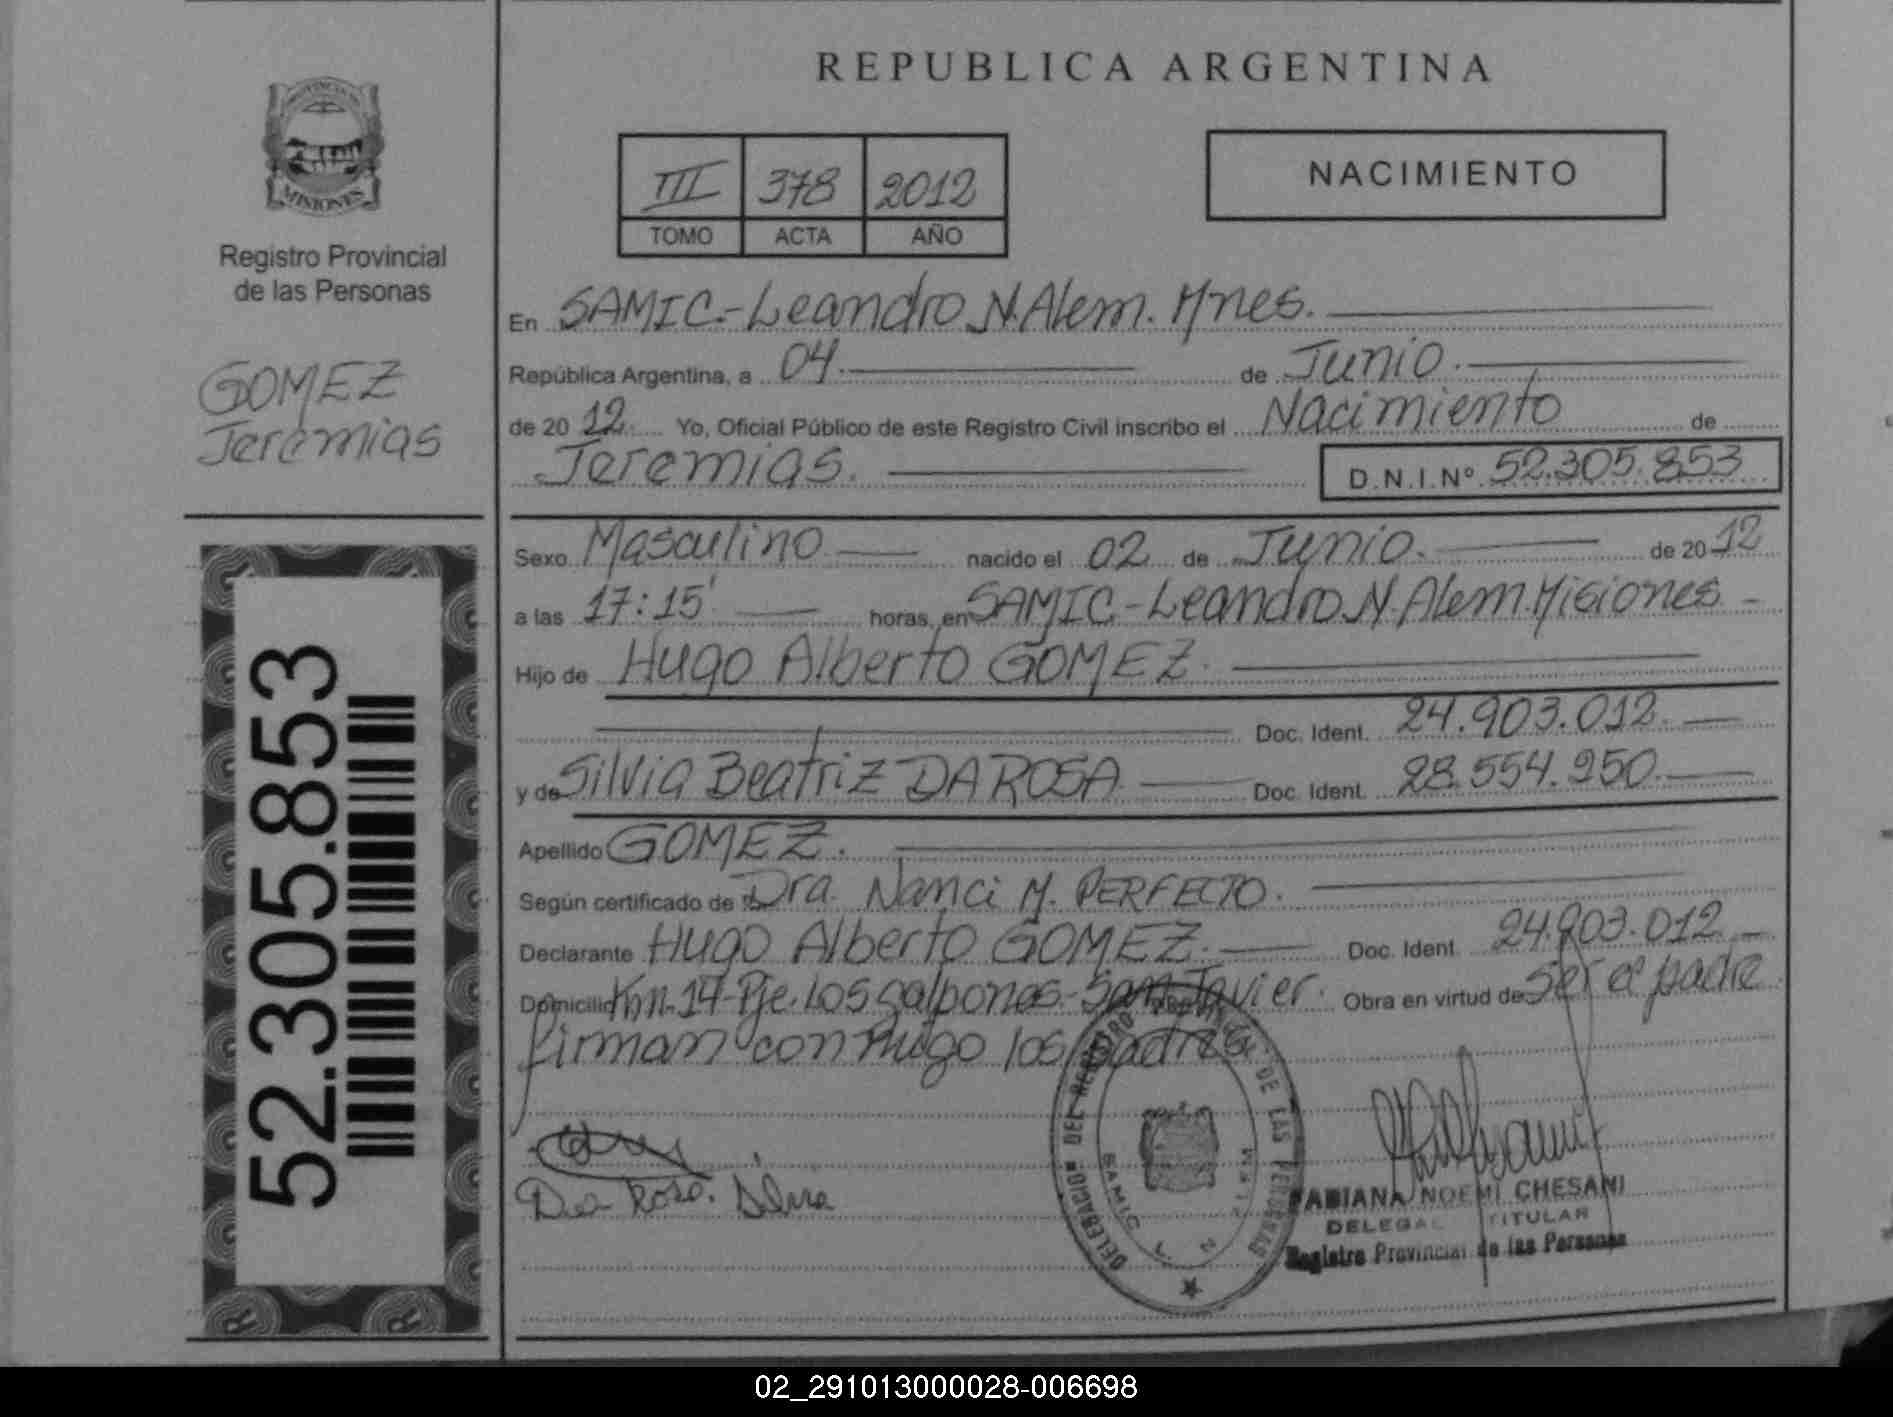 REPUBLICA ARGENTINA
PROVINCIA DE
MISIONES
Registro Provincial
de las Personas
GOMEZ
Jeremias
52.305.853
III 378 2012
TOMO ACTA AÑO
NACIMIENTO
En SAMIC.-Leandro N. Alem. Mnes.
República Argentina, a 04. de Junio.
de 20 12. Yo, Oficial Público de este Registro Civil inscribo el Nacimiento de
Jeremias. D.N.I.Nº 52.305.853
Sexo Masculino nacido el 02 de Junio. de 20 12
a las 17:15' horas, en SAMIC-Leandro N. Alem. Misiones -
Hijo de Hugo Alberto GOMEZ.
Doc. Ident. 24.903.012.
y de Silvia Beatriz DA ROSA Doc. Ident. 28.554.950.
Apellido GOMEZ.
Según certificado de Dra. Nanci M. PERFECTO.
Declarante Hugo Alberto GOMEZ. Doc. Ident. 24.903.012
Domicilio Km.14-Pje. Los galpones-San Javier. Obra en virtud de Ser el padre
firman conmigo los padres
Da Rosa. Silvia
DELEGACION DEL REGISTRO DE LAS PERSONAS
SAMIC L. N.
FABIANA NOEMI CHESANI
TITULAR
Registro Provincial de las Personas
02_291013000028-006698